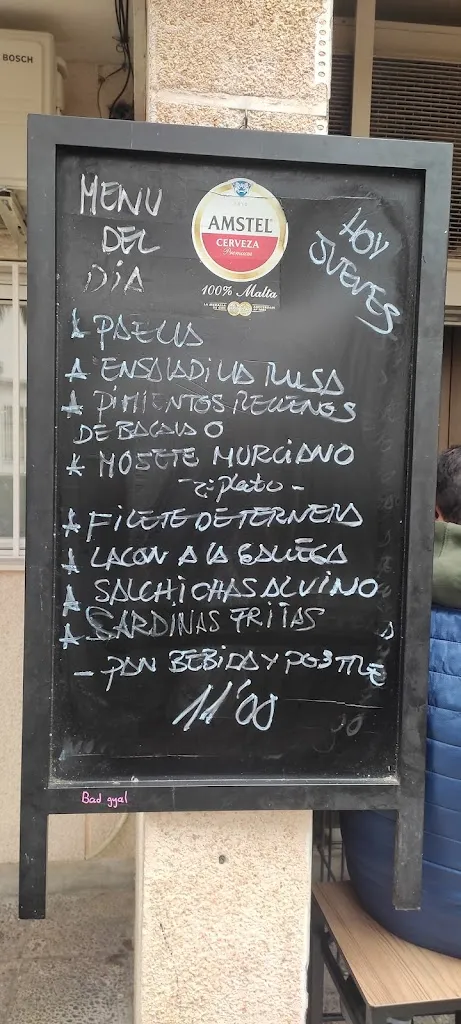 BOSCH
MENU
DEL
DIA
AMSTEL
CERVEZA
Premium
100% Malta
HOY
JUEVES
* PAELLA
* ENSALADILLA RUSA
* PIMIENTOS RELLENOS
DE BACALAO
* MOSETE MURCIANO
- 2: plato -
* FILETE DE TERNERA
* LACON A LA GALLEGA
* SALCHICHAS AL VINO
* SARDINAS FRITAS
- PAN BEBIDA Y POSTRE
11'00
Bad gyal